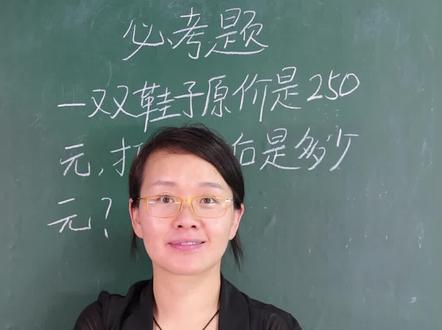 必考题
一双鞋子原价是250
元,打后是多少
元?